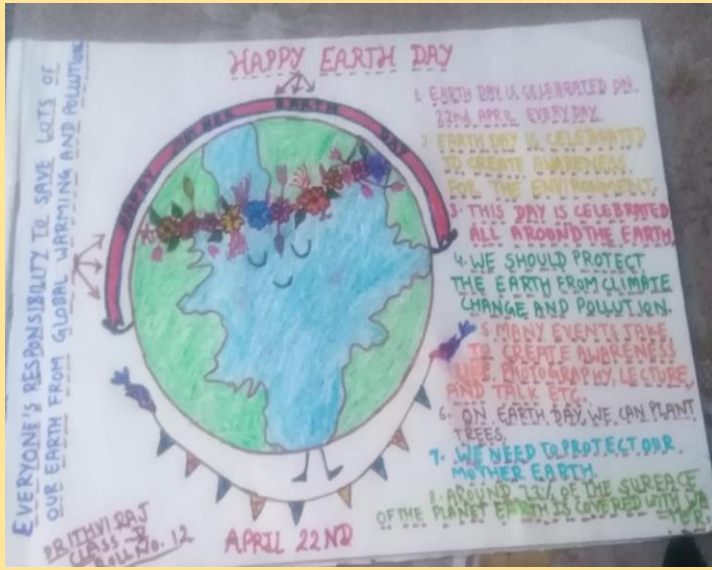 HAPPY EARTH DAY
HAPPY EARTH DAY
EVERYONE'S RESPONSIBILITY TO SAVE LOTS OF
OUR EARTH FROM GLOBAL WARMING AND POLLUTION
1. EARTH DAY IS CELEBRATED ON
22nd APRIL EVERYDAY.
2. EARTH DAY IS CELEBRATED
TO CREATE AWARENESS
FOR THE ENVIRONMENT.
3. THIS DAY IS CELEBRATED
ALL AROUND THE EARTH.
4. WE SHOULD PROTECT
THE EARTH FROM CLIMATE
CHANGE AND POLLUTION.
5. MANY EVENTS TAKE
TO CREATE AWARENESS
PHOTOGRAPHY, LECTURE,
AND TALK ETC.
6. ON EARTH DAY, WE CAN PLANT
TREES.
7. WE NEED TO PROTECT OUR
MOTHER EARTH
8. AROUND 73% OF THE SURFACE
OF THE PLANET EARTH IS COVERED WITH WA
TER.
PRITHVI RAJ
CLASS -
ROLL NO. 12
APRIL 22ND